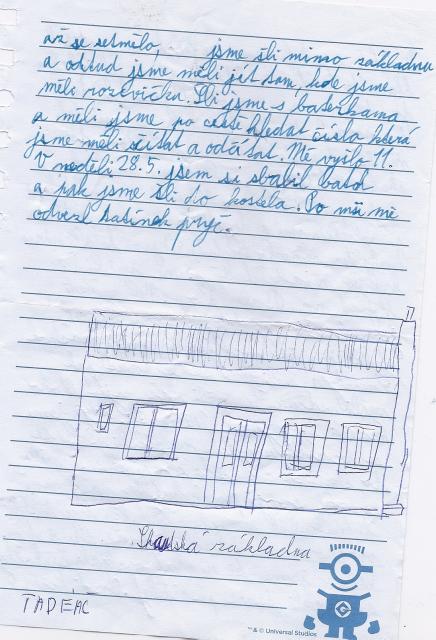 až se setmělo, jsme šli mimo základnu
a odtud jsme měli jít tam, kde jsme
měli rozcvičku. Šli jsme s baterkama
a měli jsme po cestě hledat čísla která
jsme měli sčítat a odčítat. Mě vyšlo 11.
V neděli 28.5. jsem si sbalil batoh
a pak jsme šli do kostela. Po mši mě
odvezl tatínek pryč.
základna
TADEÁŠ
™ & © Universal Studios